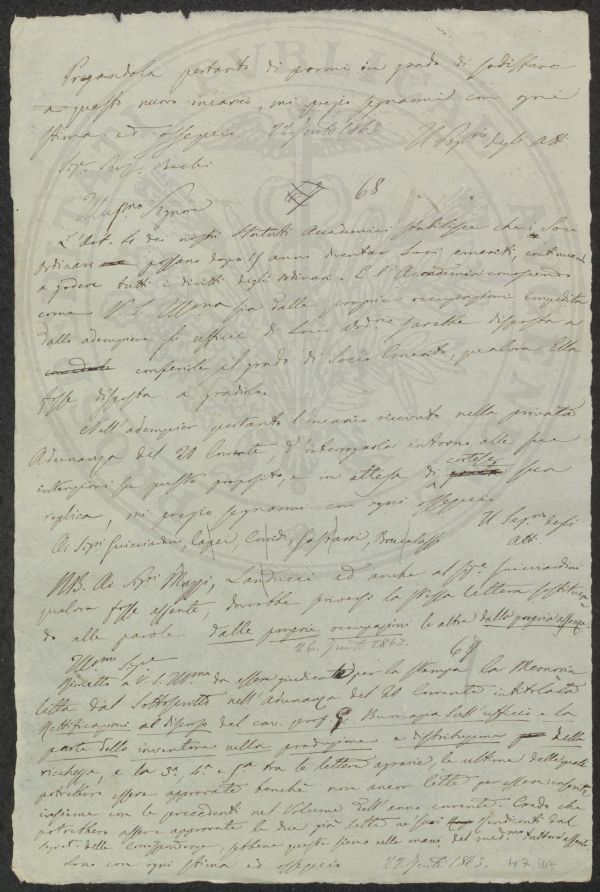 Pregandola pertanto di pormi in grado di sodisfare
a questo nuovo incarico, mi pregio segnarmi con ogni
stima ed ossequio 22 Giu 1863. Il Seg.rio degli Atti
Sig. Prof. Bechi
68
Illustrmo Signore
L'Art. 40 dei nostri Statuti Accademici stabilisce che i Soci
Ordinari possano dopo 15 anni diventar Soci emeriti, continuando
a godere tutti i diritti degli ordinari. E l'Accademia conoscendo
come V. S. Illma sia dalle proprie occupazioni impedita
dallo adempiere gli ufficii di Socio Ord.rio sarebbe disposta a
conferirle il grado di Socio Emerito, qualora Ella
fosse disposta a gradirlo.
Nell'adempier pertanto l'incarico ricevuto nella privata
Adunanza del 20 Corrente, d'interrogarla intorno alle sue
intenzioni su questo proposito, e in attesa di cortese sua
replica, mi pregio segnarmi con ogni ossequio
Il Seg.rio degli
Atti
Ai Sigri Guicciardini, Capei Corridi, Gasbarri, Brucalassi
NB. Ai Sigri Mazzi, Landucci ed anche al Sigr Guicciardini
qualora fosse assente, dovrebbe inviarsi la stessa lettera sostituen
do alle parole dalle proprie occupazioni le altre dalla propria assenza.
26. Giu 1863.
69
Illmo Sigre
Rimetto a V. S. Illma da essere giudicate per la stampa la Memoria
letta dal Sottoscritto nell'Adunanza del 20 Corrente intitolata
Rettificazioni al discorso del cav. prof. Buonazia sull'ufficio e la
parte dello inventore nella produzione e distribuzione delle
richezze, e la 3a, 4a e 5a tra le lettere agrarie, le ultime delle quali
potrebbero essere approvate benchè non ancor lette per essere inserite
insieme con le precedenti nel Volume dell'anno corrente. Credo che
potrebbero essere approvate le due già lette
Segret. delle Corrispondenze, sebbene queste sieno nelle mani del med.mo tuttora assente
Sono con ogni stima ed ossequio 22. Giu 1863. 47.147